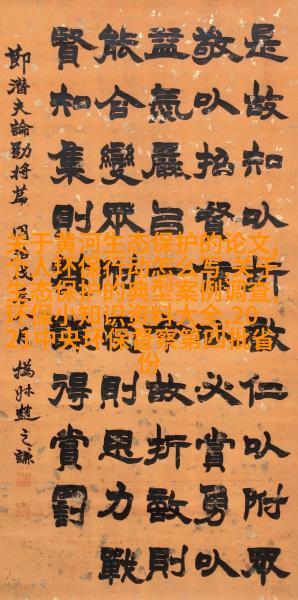 关于黄河生态保护的论文,
个人环保行动怎么写,关于
生态保护的典型案例调查,
环保小知识资料大全,20
2中央环保督察第四批省
份
是故知仁㠯附眾
敬㠯招賢必賞勇㠯
益氣嚴㠯故折敵則
能合變眾則恩力戰
賢知集則得賞罰
節潛夫論勸將篇 同治戊辰 月 撝叔趙之謙